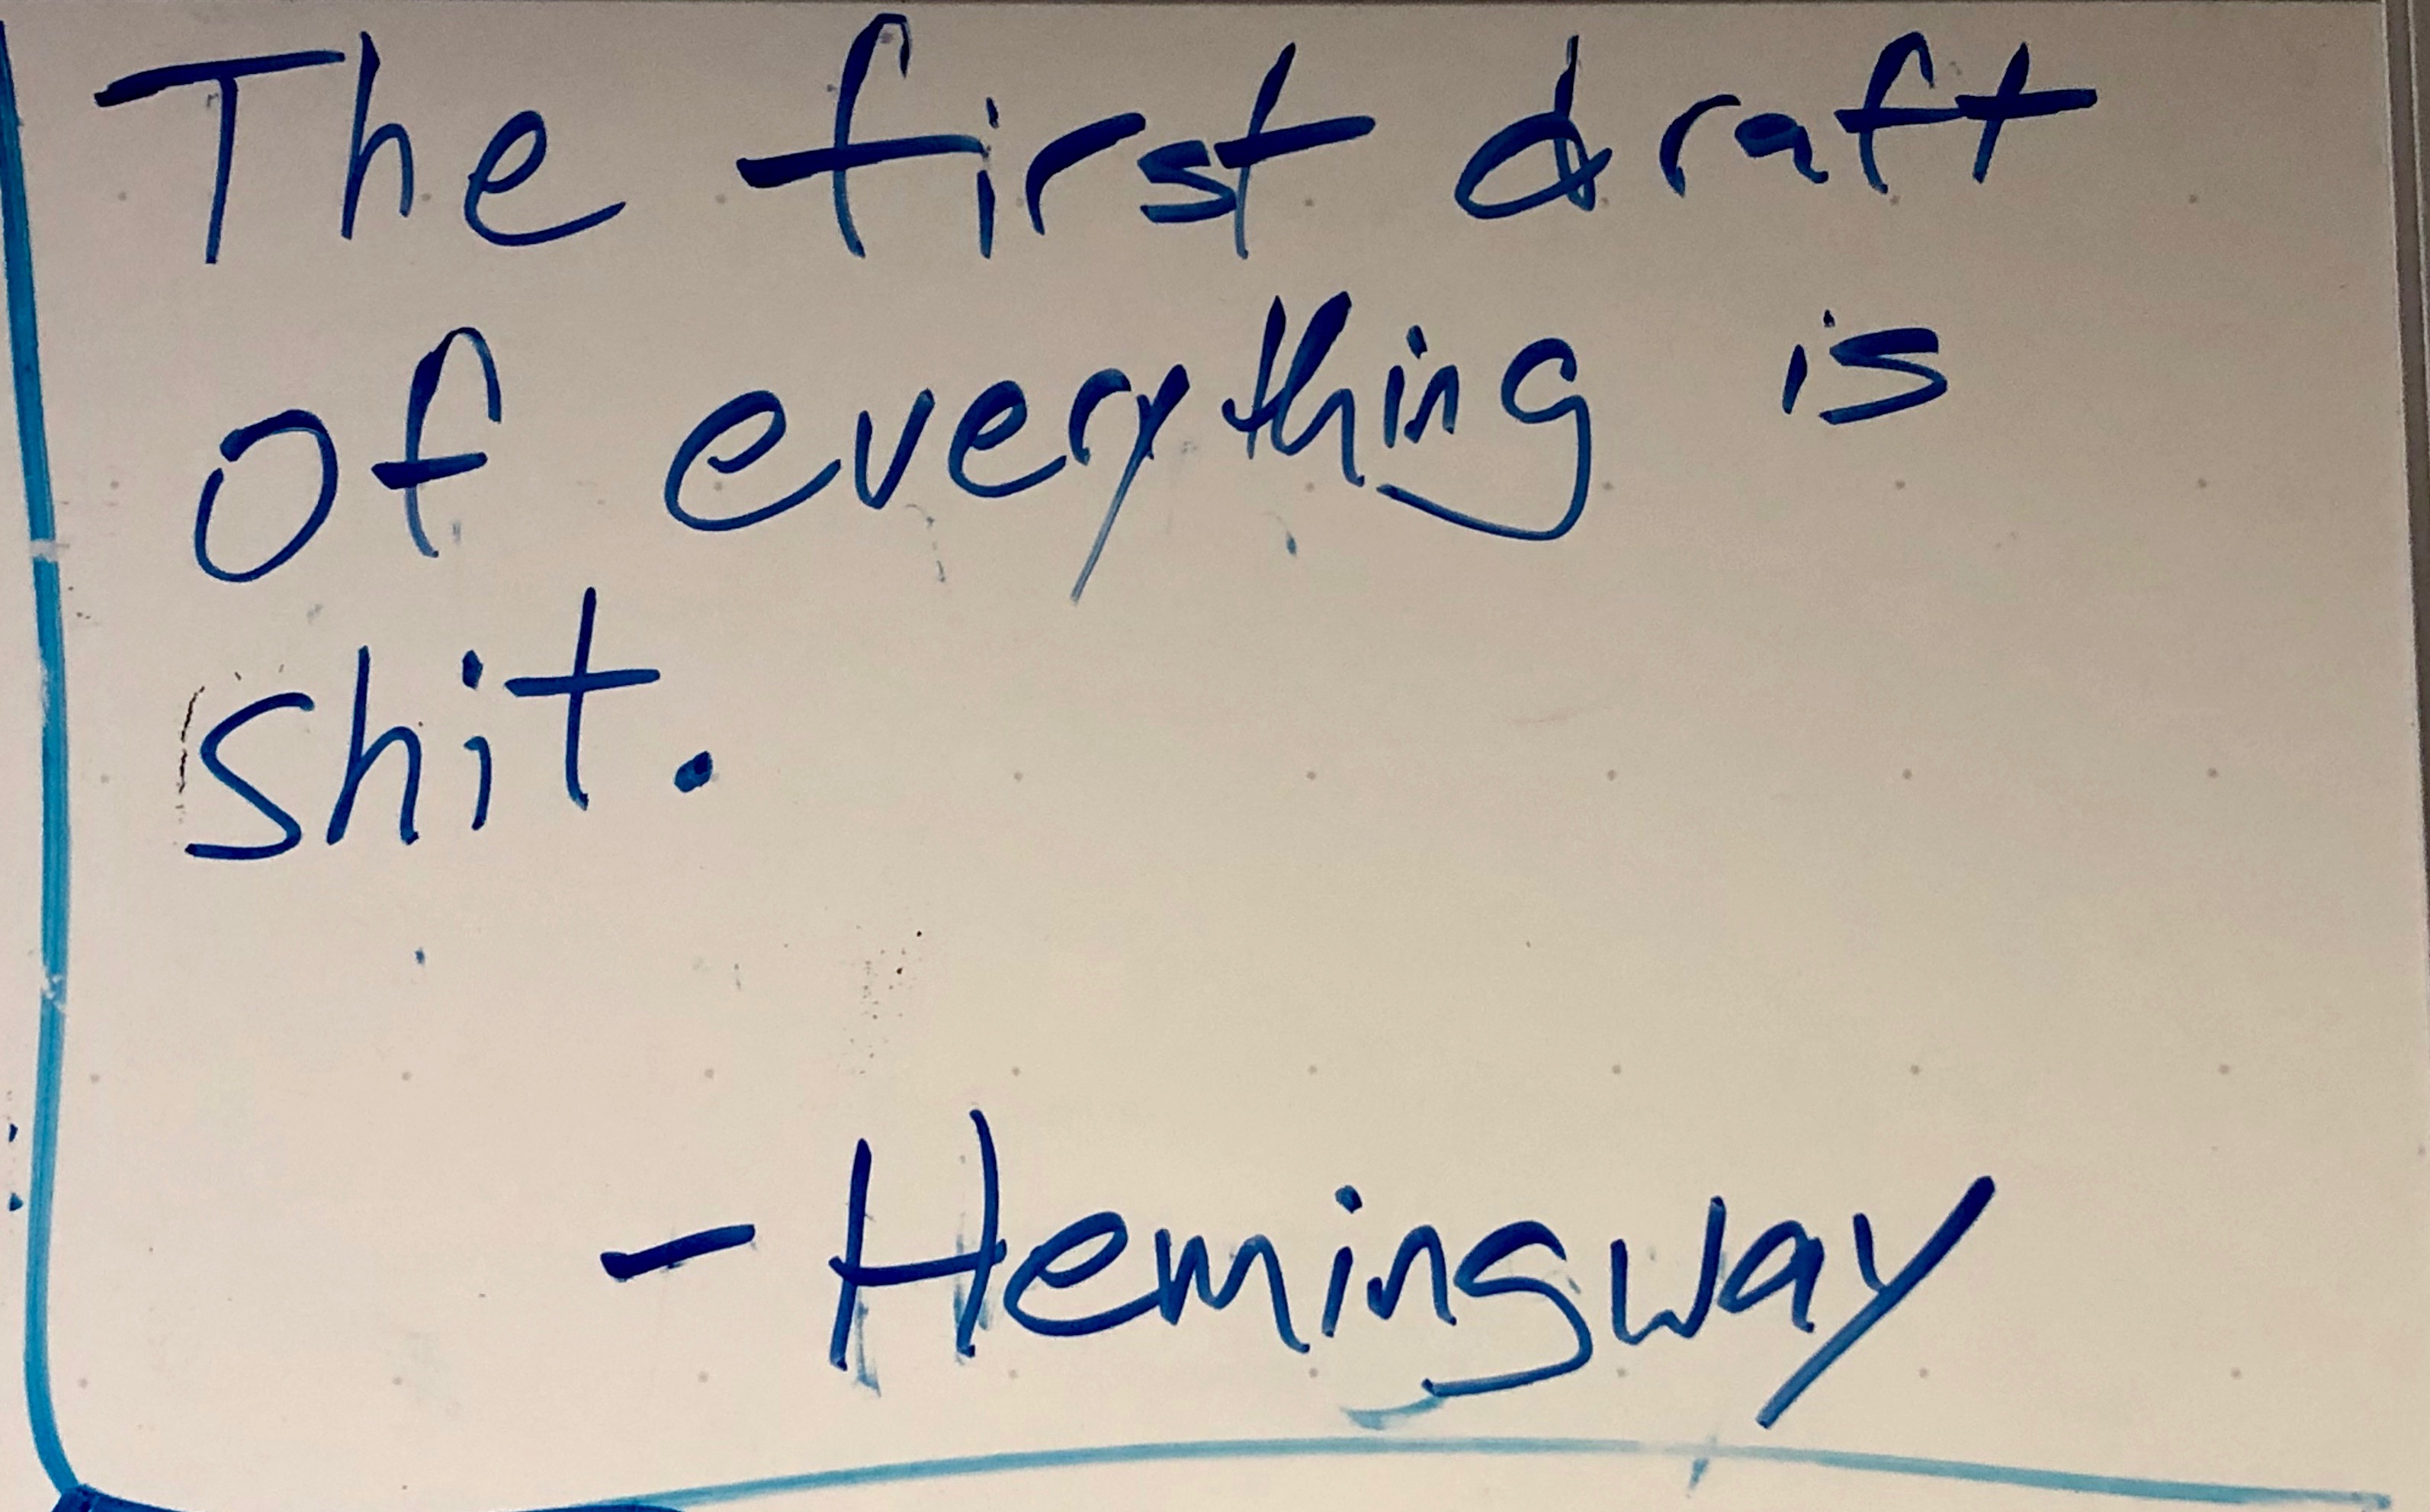 The first draft
of everything is
shit.
- Hemingway